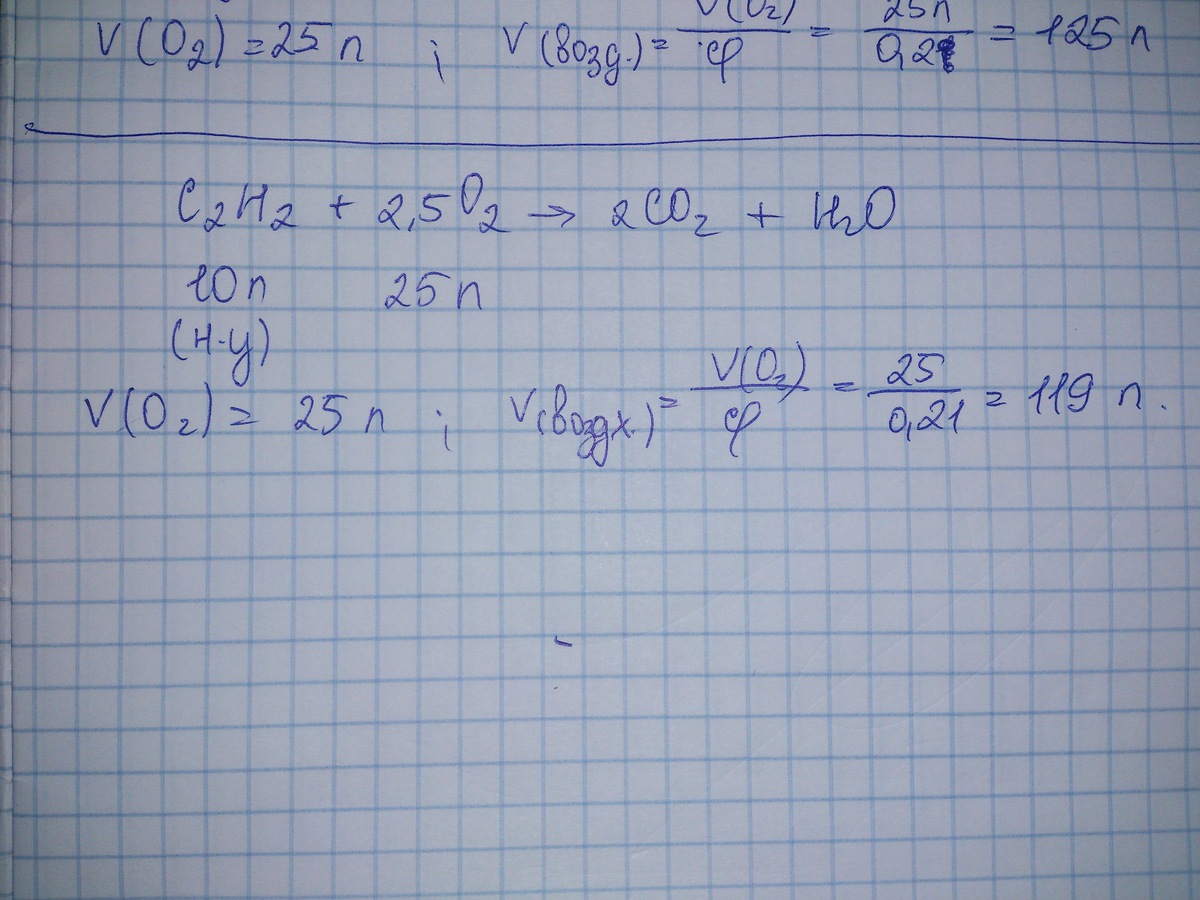 V(O₂) = 25 л ; V(возд.) = V(O₂)/φ = 25л/0,2 = 125 л
C₂H₂ + 2,5O₂ → 2CO₂ + H₂O
10л 25 л
(н.у)
V(O₂) = 25 л ; V(воздх.) = V(O₂)/φ = 25/0,21 = 119 л.